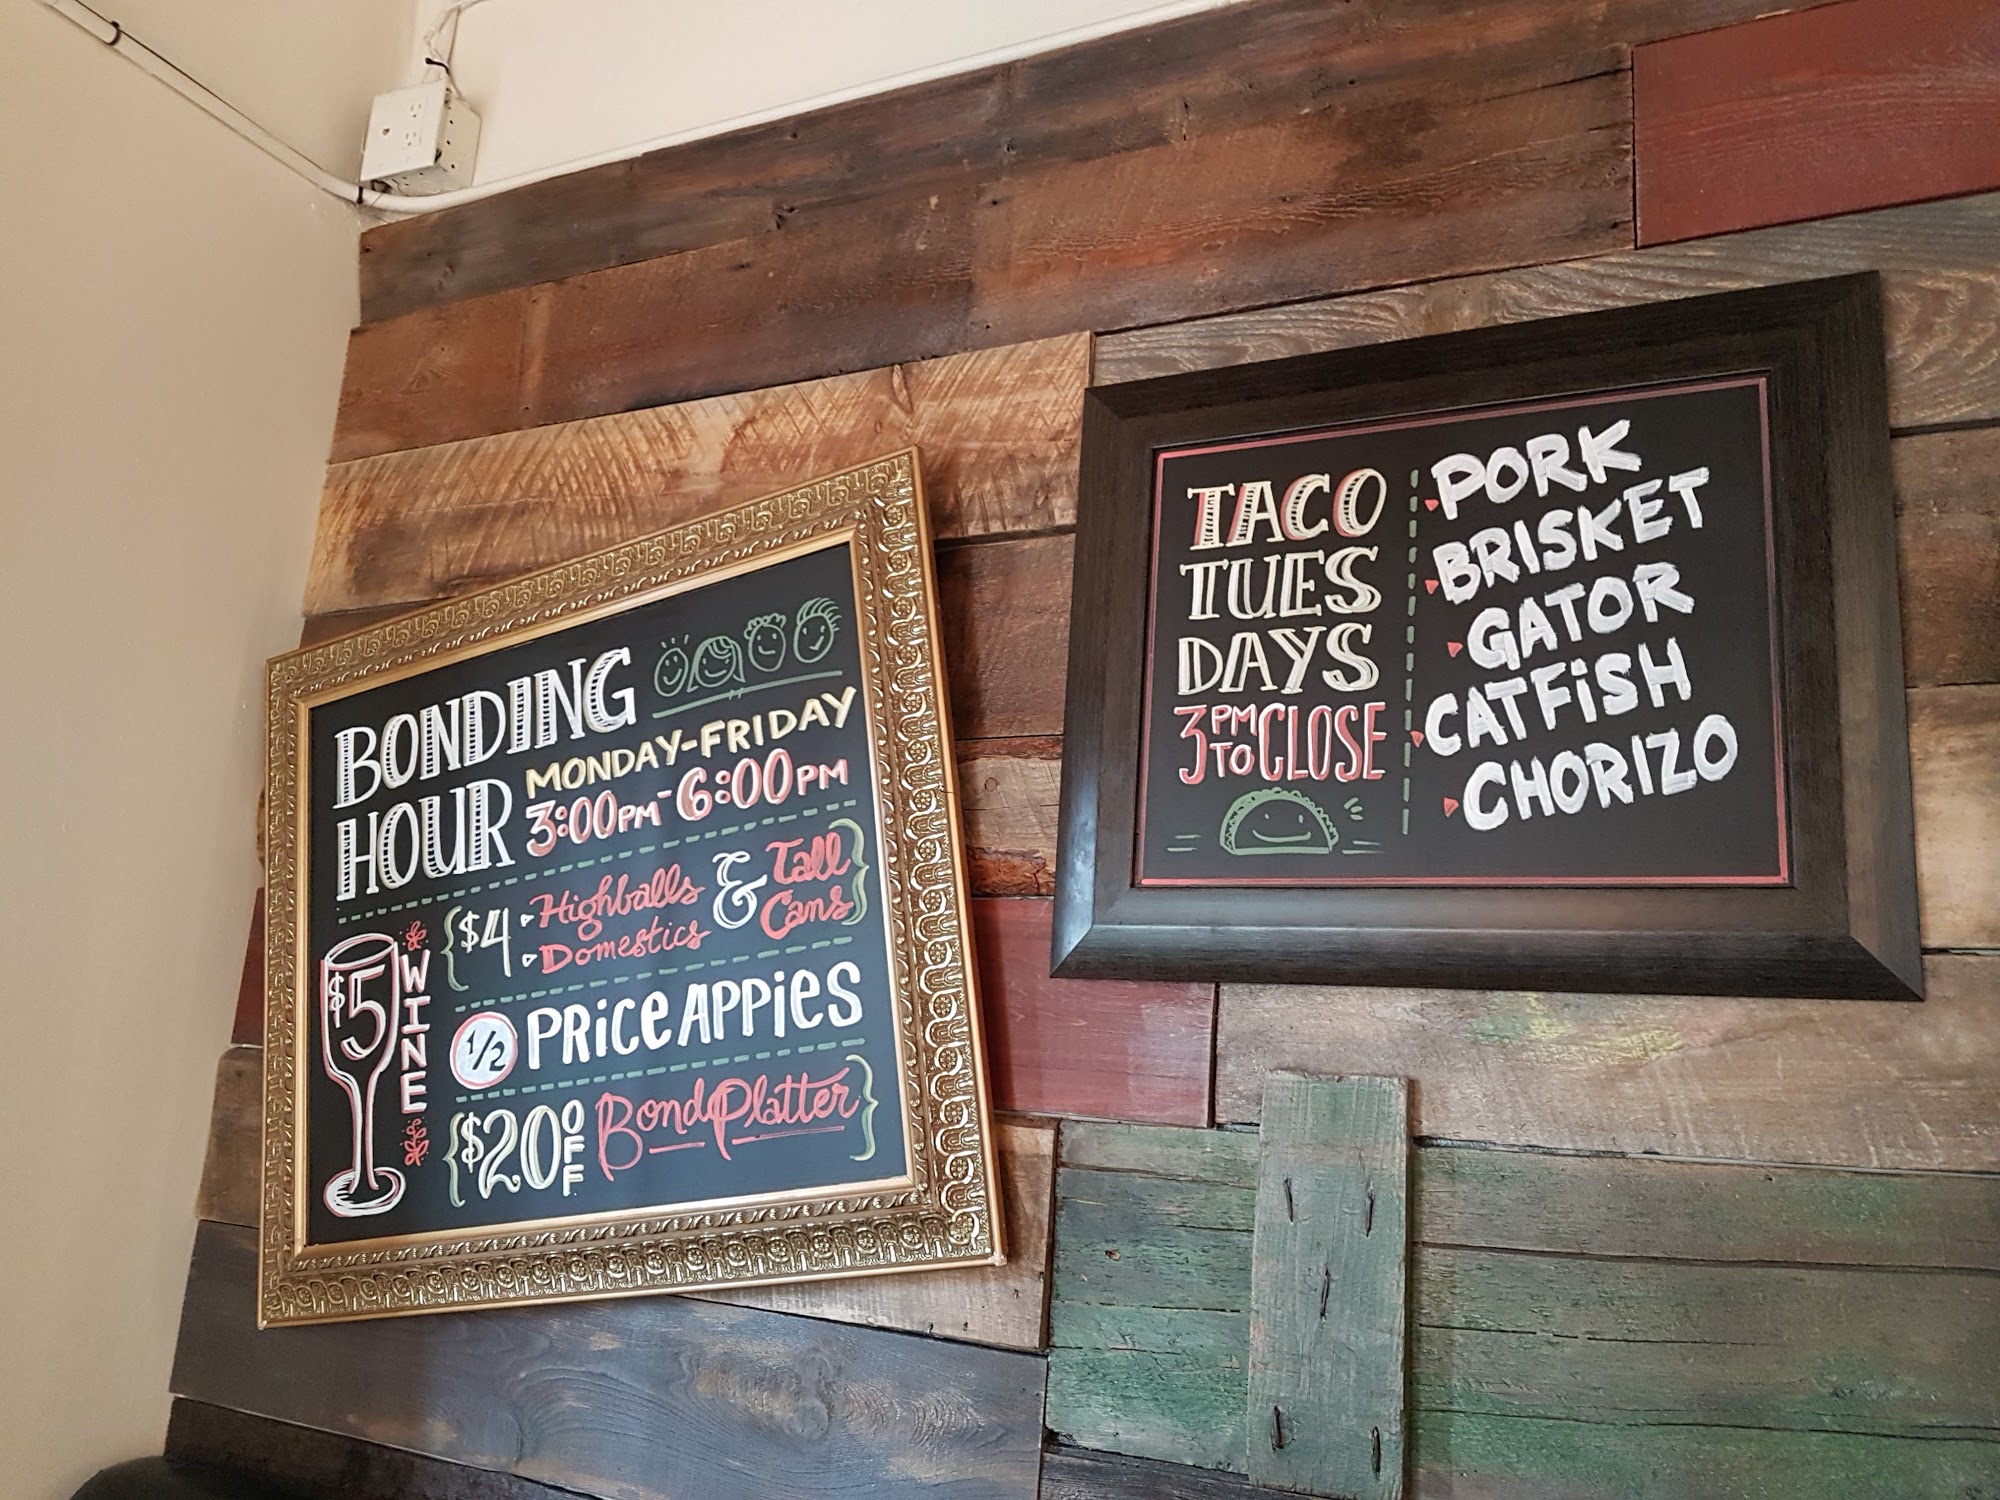 BONDING
HOUR
MONDAY-FRIDAY
3:00PM-6:00PM
$5
WINE
$4 Highballs & Tall
Domestics Cans
1/2 PRiCE APPiES
$20 OFF Bond Platter
TACO
TUES
DAYS
3PM TO CLOSE
PORK
BRISKET
GATOR
CATFiSH
CHORIZO